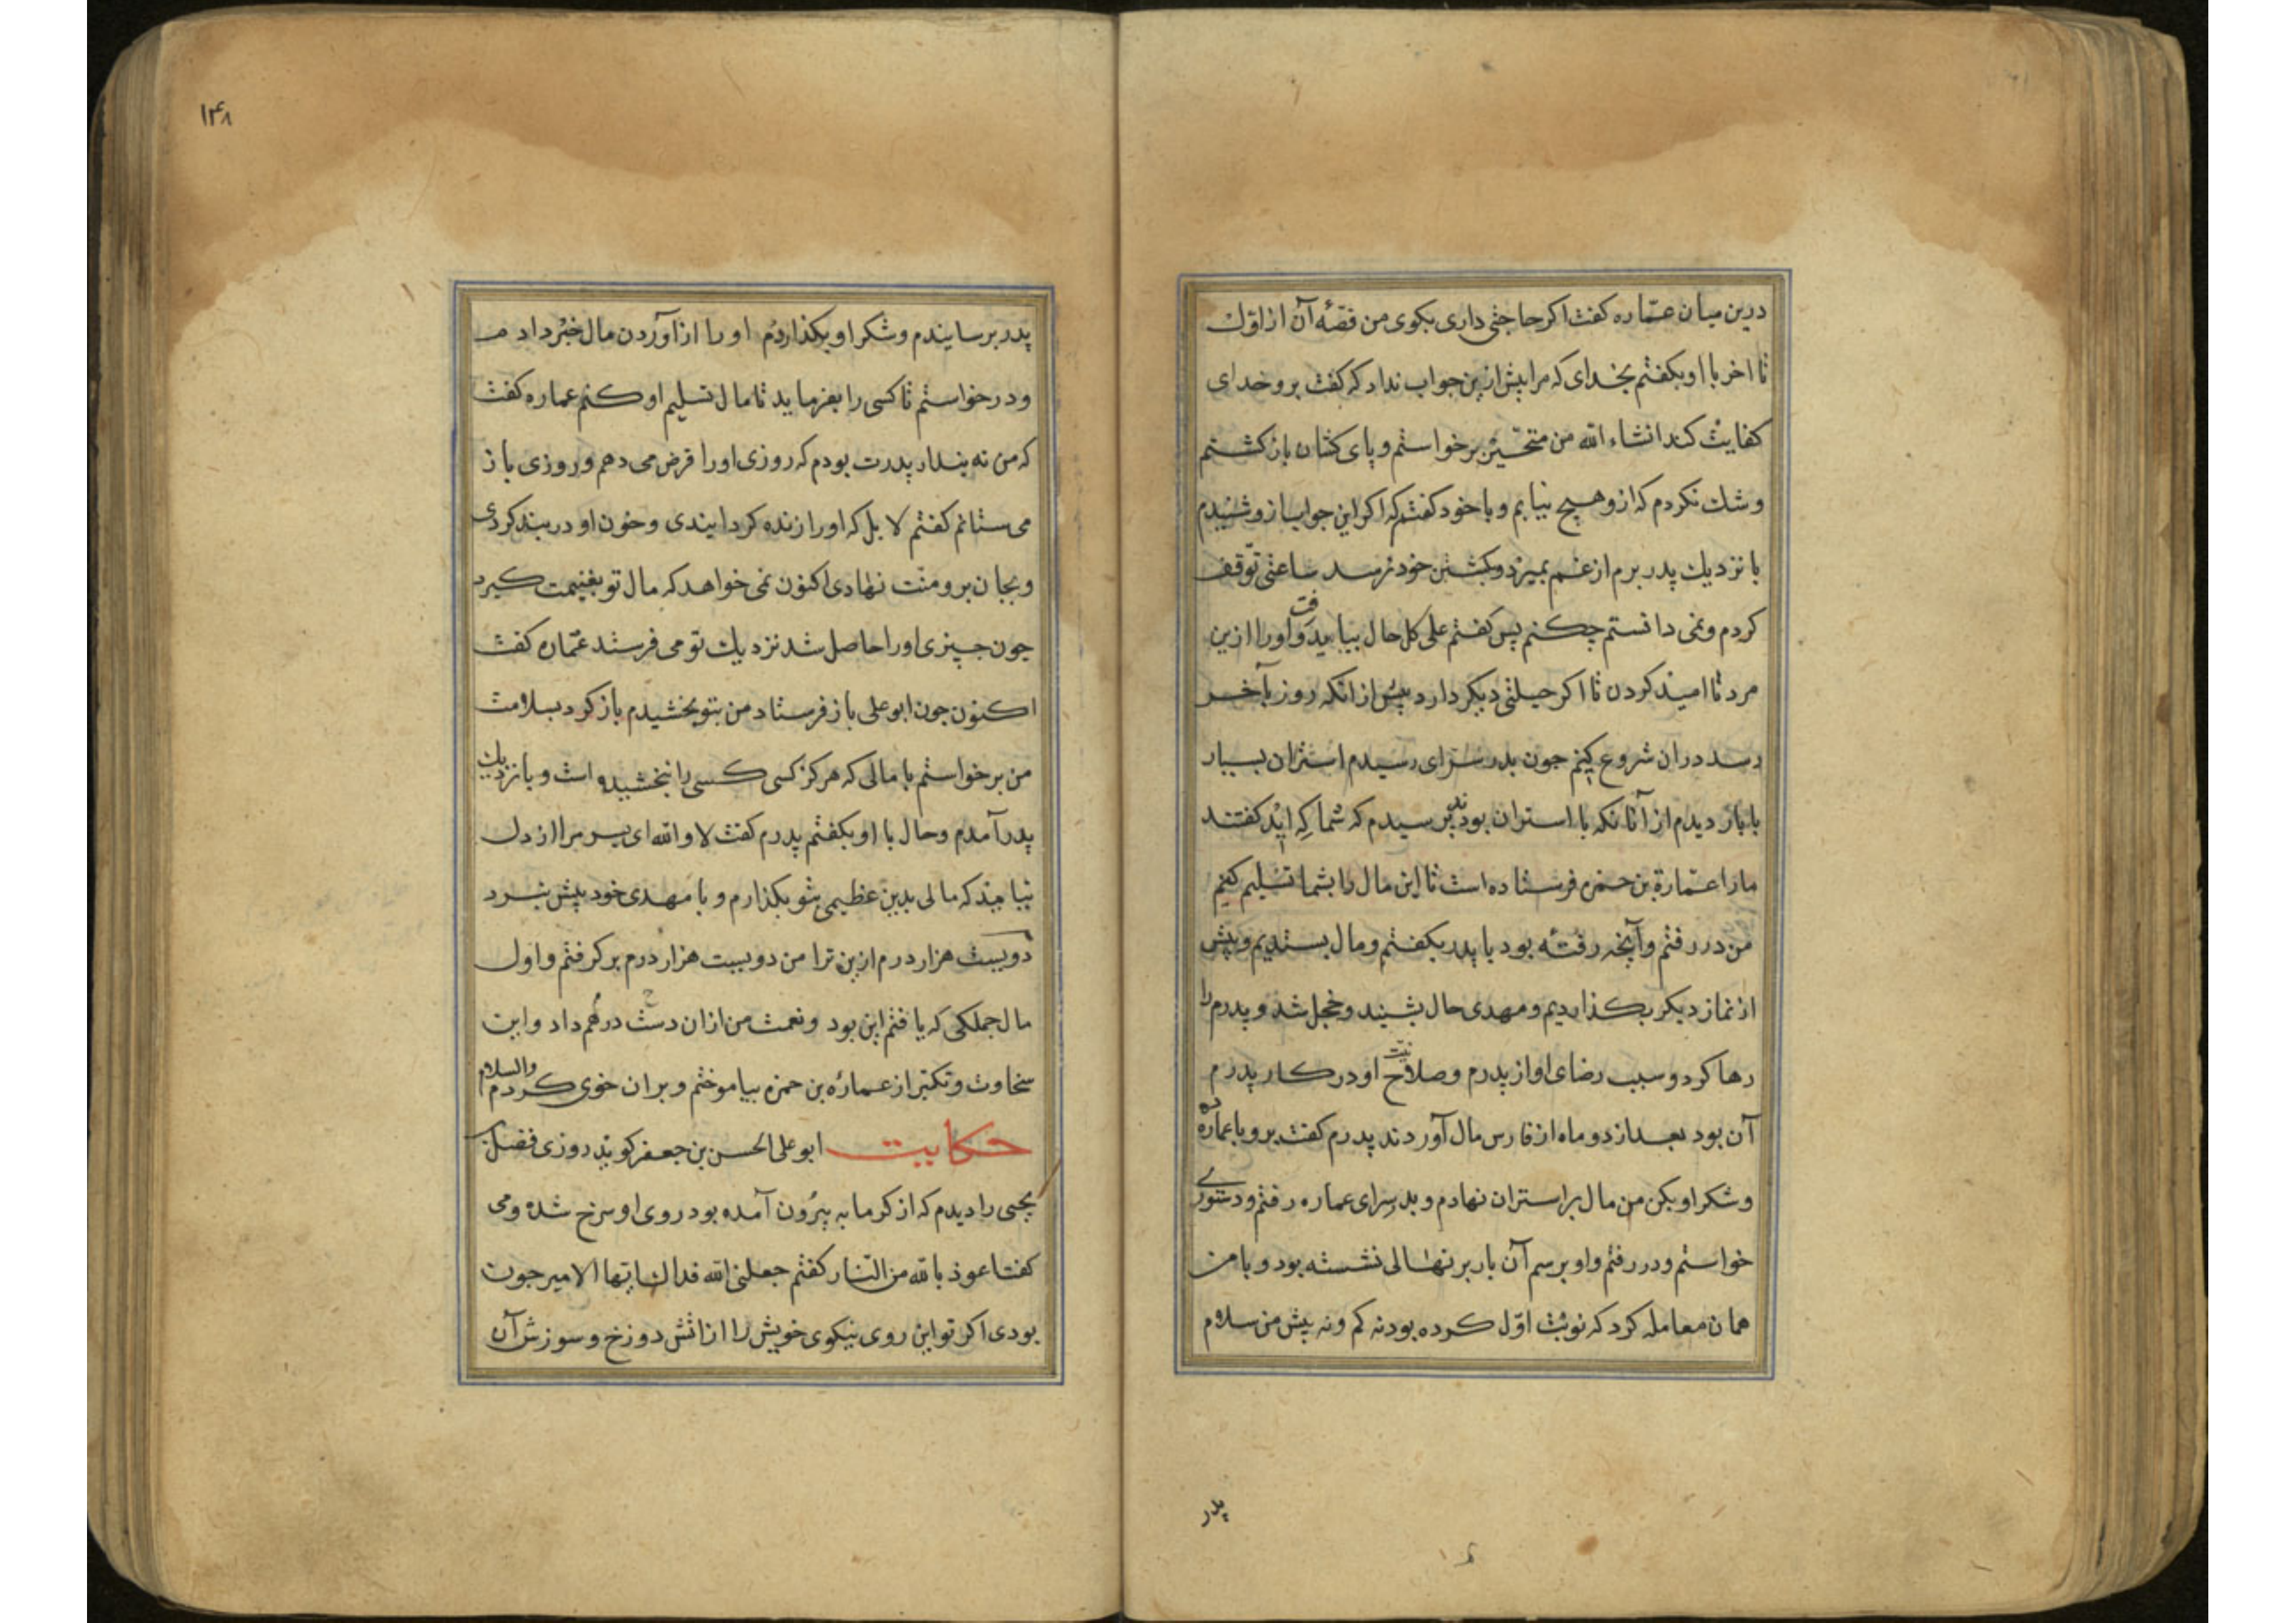 درین میان عمّاره کفت اکر حاجتی داری بکوی من قصّهٔ آن از اوّل
تا اخر با او بکفتم بخدای که مرا بیش ازین جواب نداد که کفت برو خدای
کفایت کند انشاء الله من متحیّر برخواستم و پای کشان باز کشتم
و شک نکردم که از و هیچ نیابم و با خود کفتم که اکر این جواب از و شنیدم
با نزدیک پدر برم از غم بمیرد و بکشتن خود نرسد ساعتی توّقف
کردم و نمی دانستم چکنم پس کفتم علی کل حال بباید رفت و او را ازین
مرد تا امید کردن تا اکر حیلتی دیکر دارد پیش از انکه روز بآخر
رسد دران شروع کنیم جون بدر سرای رسیدم استران بسیار
با بار دیدم از آنانکه با استران بودند پرسیدم که شما که اید کفتند
ما را عمّارة بن حمزه فرستاده است تا این مال را بشما تسلیم کنیم
من در رفتم و آنچه رفته بود با پدر بکفتم و مال بستدیم و پیش
از نماز دیکر بکذاردیم و مهدی حال بشنید و خجل شد و پدرم را
رها کرد و سبب رضای او از پدرم و صلاح نیّت او در کار پدرم
آن بود بعد از دو ماه از فارس مال آوردند پدرم کفت برو با عماره ده
و شکر او بکن من مال بر استران نهادم و بدر سرای عماره رفتم و دستوری
خواستم و در رفتم و او برسم آن بار بر نهالی نشسته بود و با من
همان معامله کرد که نوبت اوّل کرده بود نه کم و نه بیش من سلام
پدر
۱۴۸
پدر برسانیدم و شکر او بکذاردم او را از آوردن مال خبر دادم
و در خواستم تا کسی را بفرماید تا مال تسلیم او کنم عماره کفت
که من نه بندار پدرت بودم که روزی او را قرض می دهم و روزی باز
می ستانم کفتم لا بل که او را زنده کردانیدی و خون او در بند کردی
و بجان برو منّت نهادی اکنون نمی خواهد که مال تو بغنیمت کیرد
جون چیزی او را حاصل شد نزدیک تو می فرستد عمّاره کفت
اکنون جون ابو علی باز فرستاد من بتو بخشیدم باز کرد بسلامت
من برخواستم با مالی که هرکز کسی کسی را نبخشیده است و با نزدیک
پدر آمدم و حال با او بکفتم پدرم کفت لا والله ای پسر مرا از دل
نیاید که مالی بدین عظیمی بتو بکذارم و با مهدی خود بیش نبرد
دویست هزار درم ازین ترا من دویست هزار درم بر کرفتم و اول
مال جملکی که یافتم این بود و نعمت من ازان دست درهم داد و این
سخاوت و تکبّر از عمارة بن حمزه بیاموختم و بران خوی کردم والسلام
حکایت ابو علی الحسن بن جعفر کوید روزی فضل بن
یحیی را دیدم که از کرمابه بیرون آمده بود روی او سرخ شده و می
کفت اعوذ بالله من النّار کفتم جعلنی الله فداک ایها الامیر جون
بودی اکر تو این روی نیکوی خویش را از اتش دوزخ و سوزش آن